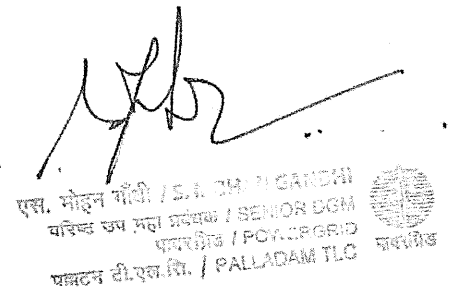 एस. मोहन गाँधी / GANDHI
वरिष्ठ उप महा प्रबंधक / SENIOR DGM
पावरग्रिड / POWERGRID
टी.एल.सि. / PALLADAM TLC
पावरग्रिड